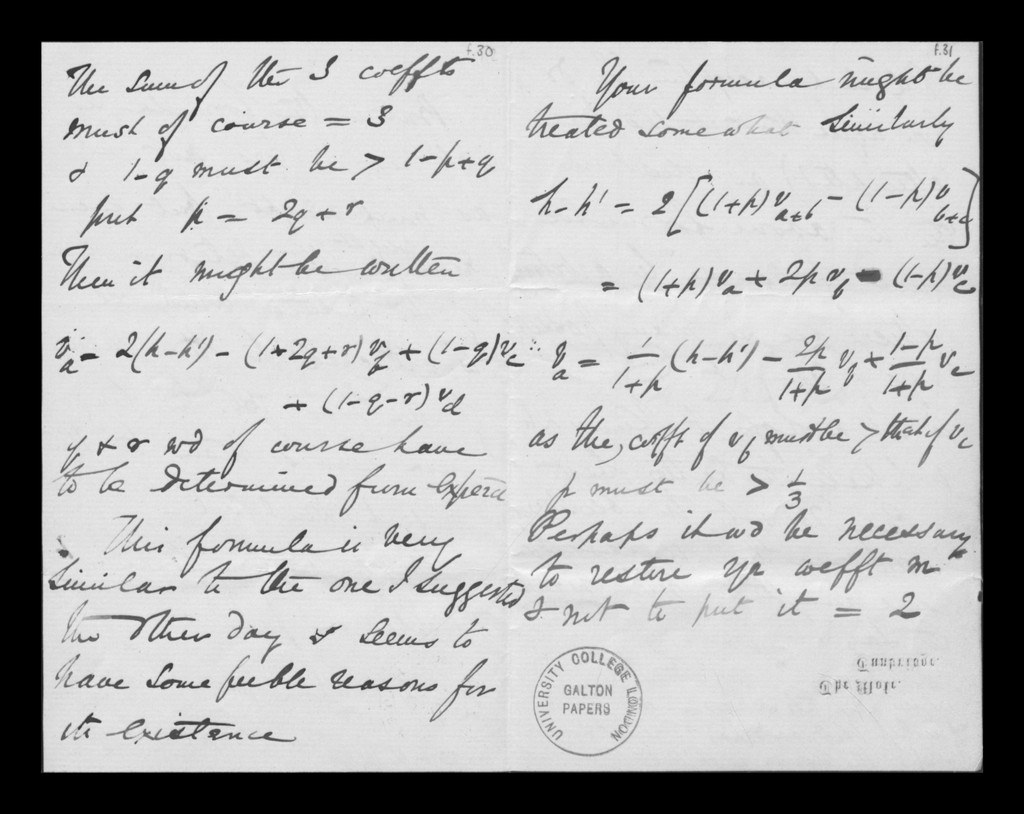 f.30
The sum of the 3 coeffts
must of course = 3
& 1-q must be > 1-p+q
put p = 2q+r
Then it might be written
v_a = 2(h-h') - (1+2q+r)v_b + (1-q)v_c
+ (1-q-r)v_d
q & r wd of course have
to be determined from experce
This formula is very
similar to the one I suggested
the other day & seems to
have some feeble reasons for
its existence
f.31
Your formula might be
treated somewhat similarly
h-h' = 2[(1+p)v_{a+b} - (1-p)v_{b+c}]
= (1+p)v_a + 2p v_b - (1-p)v_c
∴ v_a = 1/(1+p) (h-h') - 2p/(1+p) v_b + (1-p)/(1+p) v_c
as the coefft of v_b must be > that of v_c
p must be > 1/3
Perhaps it wd be necessary
to restore yr coefft m
& not to put it = 2
UNIVERSITY COLLEGE LONDON
GALTON
PAPERS
The Mote.
Tunbridge.